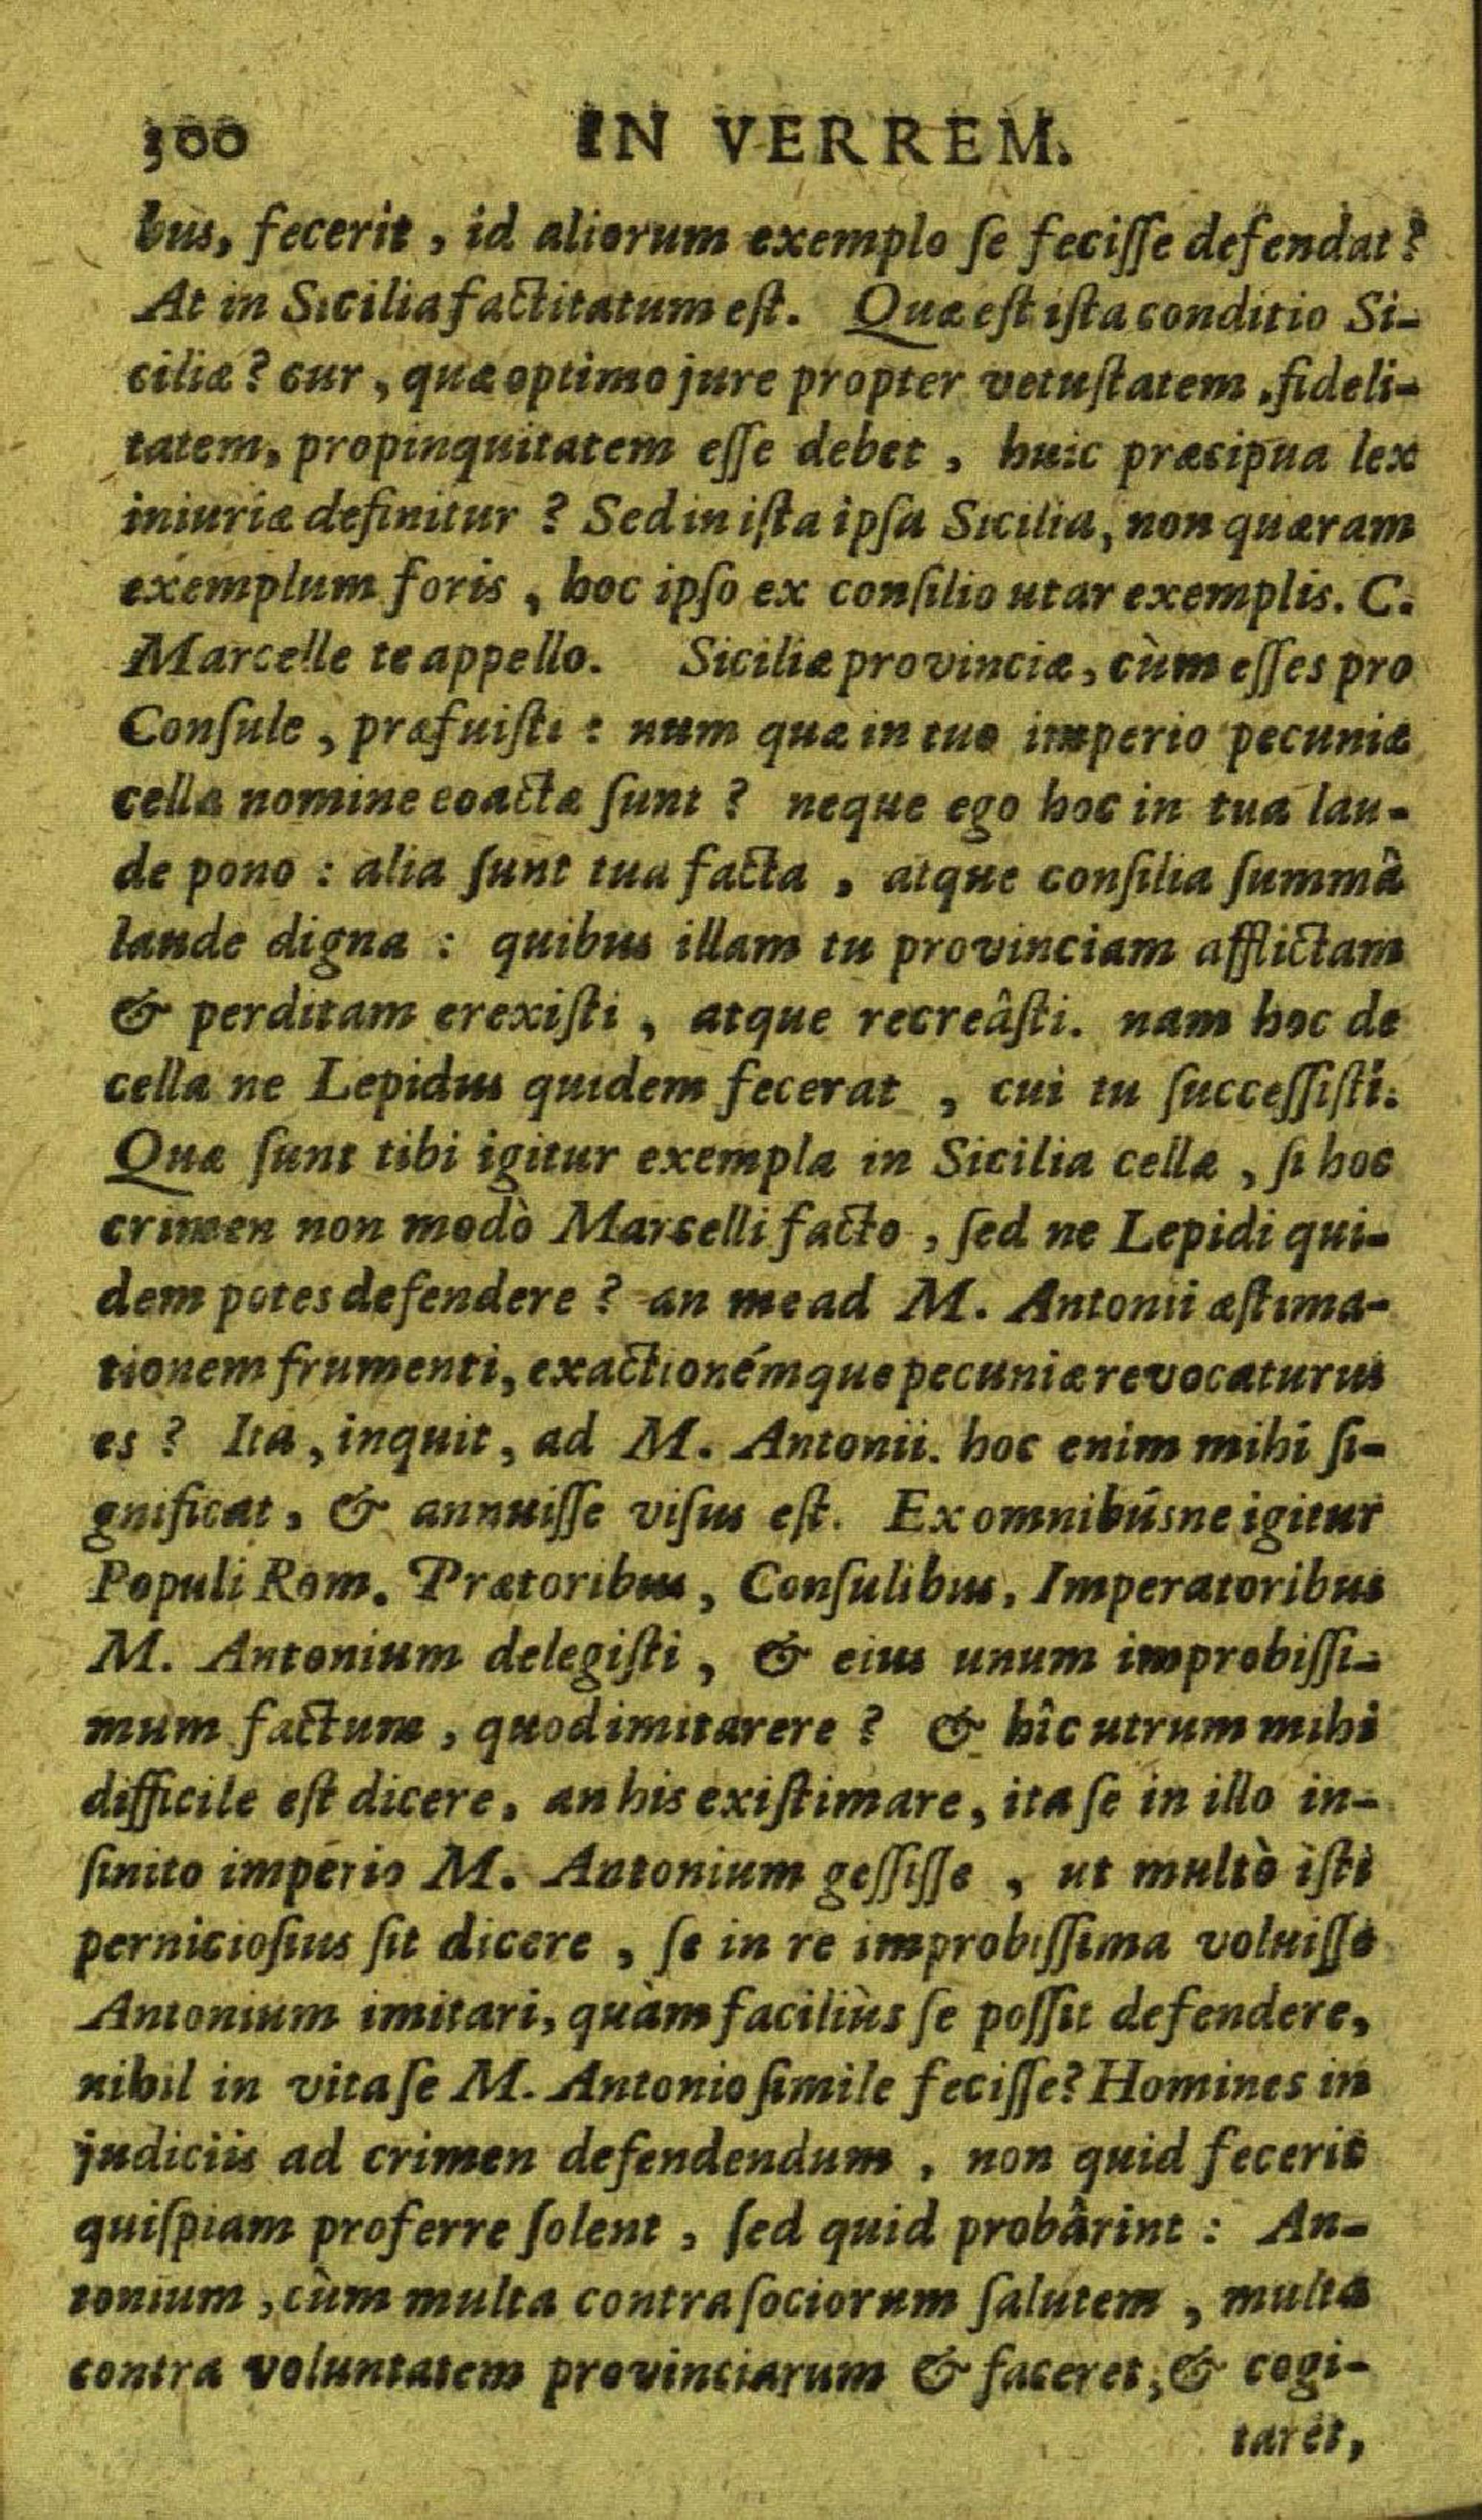 300 IN VERREM.
bus, fecerit, id aliorum exemplo ſe feciſſe defendat?
At in Sicilia factitatum eſt. Quæ eſt iſta conditio Si-
ciliæ? cur, quæ optimo jure propter vetuſtatem, fideli-
tatem, propinquitatem eſſe debet, huic præcipua lex
iniuriæ definitur? Sed in iſta ipſa Sicilia, non quæram
exemplum foris, hoc ipſo ex conſilio utar exemplis. C.
Marcelle te appello. Siciliæ provinciæ, cùm eſſes pro
Conſule, præfuiſti: num quæ in tuo imperio pecuniæ
cellæ nomine coactæ ſunt? neque ego hoc in tua lau-
de pono: alia ſunt tua facta, atque conſilia ſummâ
laude digna: quibus illam tu provinciam afflictam
& perditam erexiſti, atque recreâſti. nam hoc de
cella ne Lepidus quidem fecerat, cui tu ſucceſſiſti.
Quæ ſunt tibi igitur exempla in Sicilia cellæ, ſi hoc
crimen non modò Marcelli facto, ſed ne Lepidi qui-
dem potes defendere? an me ad M. Antonii æſtima-
tionem frumenti, exactionémque pecuniæ revocaturus
es? Ita, inquit, ad M. Antonii. hoc enim mihi ſi-
gnificat, & annuiſſe viſus eſt. Ex omnibúsne igitur
Populi Rom. Prætoribus, Conſulibus, Imperatoribus
M. Antonium delegiſti, & eius unum improbiſſi-
mum factum, quod imitarere? & hîc utrum mihi
difficile eſt dicere, an his exiſtimare, ita ſe in illo in-
finito imperio M. Antonium geſſiſſe, ut multò iſti
pernicioſius ſit dicere, ſe in re improbiſſima voluiſſe
Antonium imitari, quàm faciliùs ſe poſſit defendere,
nihil in vita ſe M. Antonio ſimile feciſſe? Homines in
judiciis ad crimen defendendum, non quid fecerit
quiſpiam proferre ſolent, ſed quid probârint: An-
tonium, cùm multa contra ſociorum ſalutem, multa
contra voluntatem provinciarum & faceret, & cogi-
taret,